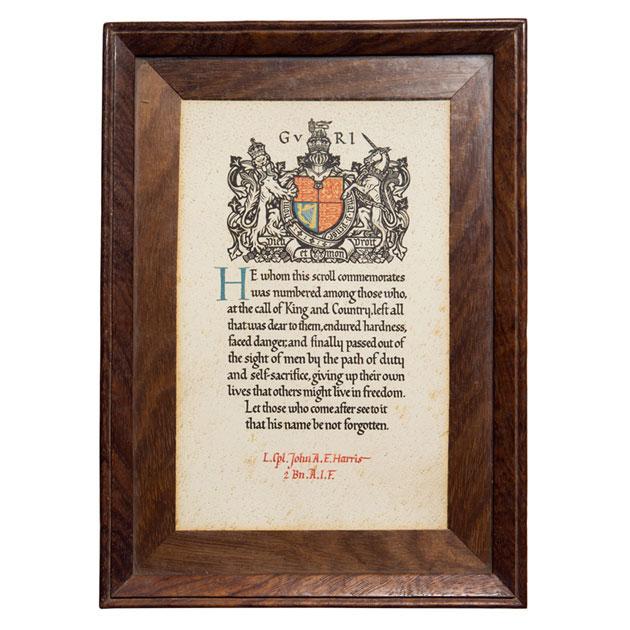 GV RI
Dieu et mon Droit
HE whom this scroll commemorates
was numbered among those who,
at the call of King and Country, left all
that was dear to them, endured hardness,
faced danger, and finally passed out of
the sight of men by the path of duty
and self-sacrifice, giving up their own
lives that others might live in freedom.
Let those who come after see to it
that his name be not forgotten.
L. Cpl. John A. E. Harris
2 Bn. A. I. F.